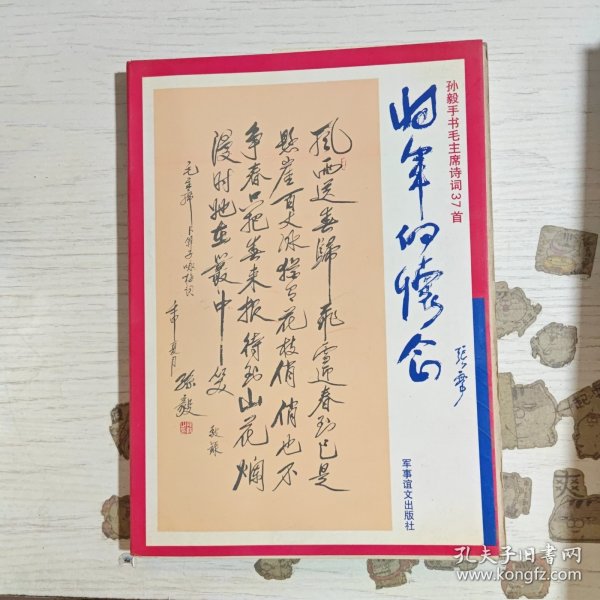 孙毅手书毛主席诗词37首
将军的怀念
张震
风雨送春歸飛雪迎春到已是
懸崖百丈冰猶有花枝俏俏也不
争春只把春来报待到山花爛
漫时她在叢中笑
毛主席卜算子咏梅词
壬申夏月
孙毅
敬录
军事谊文出版社
孔夫子旧书网
www.kongfz.com
爽